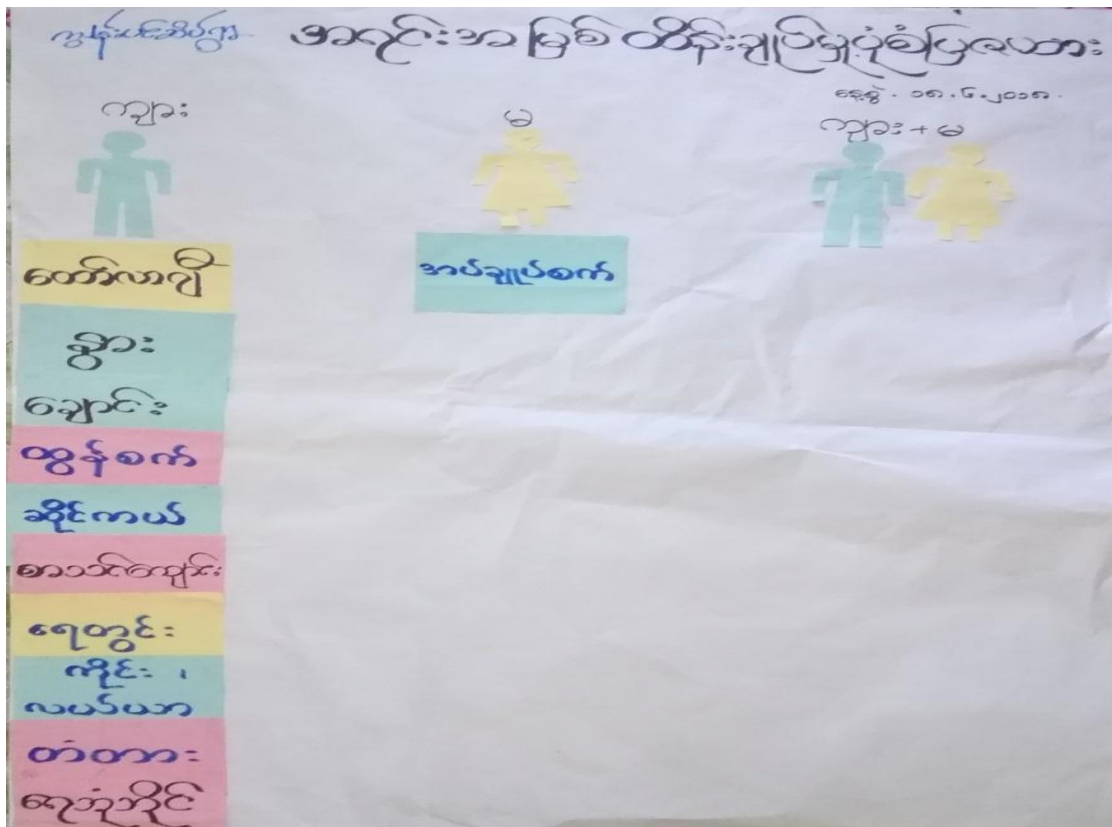 ကွန်းသင်းဆိပ်ရွာ
အရင်းအမြစ် ထိန်းချုပ်မှုပုံစံပြဇယား
နေ့စွဲ . ၁၈.၆.၂၀၁၈.
ကျား
မ
ကျား + မ
ထော်လာဂျီ
အပ်ချုပ်စက်
နွား
ချောင်း
ထွန်စက်
ဆိုင်ကယ်
စာသင်ကျောင်း
ရေတွင်း
ကိုင်း ၊
လယ်ယာ
တံတား
ရေဘုံဘိုင်